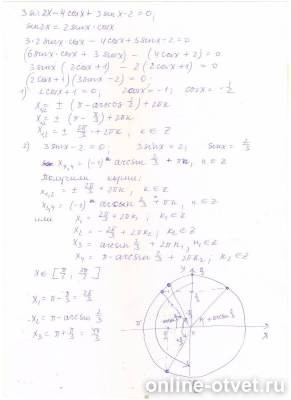 3 sin 2x − 4 cos x + 3 sin x − 2 = 0;
sin 2x = 2 sin x · cos x
3 · 2 sin x · cos x − 4 cos x + 3 sin x − 2 = 0
(6 sin x · cos x + 3 sin x) − (4 cos x + 2) = 0
3 sin x (2 cos x + 1) − 2 (2 cos x + 1) = 0
(2 cos x + 1)(3 sin x − 2) = 0
1) 2 cos x + 1 = 0; 2 cos x = −1; cos x = −1/2
x1,2 = ± (π − arccos 1/2) + 2πk
x1,2 = ± (π − π/3) + 2πk
x1,2 = ± 2π/3 + 2πk, k ∈ Z
2) 3 sin x − 2 = 0; 3 sin x = 2; sin x = 2/3
x3,4 = (−1)^n arcsin 2/3 + πn, n ∈ Z
Получили корни:
x1,2 = ± 2π/3 + 2πk, k ∈ Z
x3,4 = (−1)^n arcsin 2/3 + πn, n ∈ Z
или x1 = 2π/3 + 2πk1, k1 ∈ Z
x2 = − 2π/3 + 2πk2; k2 ∈ Z
x3 = arcsin 2/3 + 2πn1, n1 ∈ Z
x4 = π − arcsin 2/3 + 2πn2, n2 ∈ Z
x1 = π − π/3 = 2π/3
x2 = π − arcsin 2/3
x3 = π + π/3 = 4π/3
y
π
x
online-otvet.ru